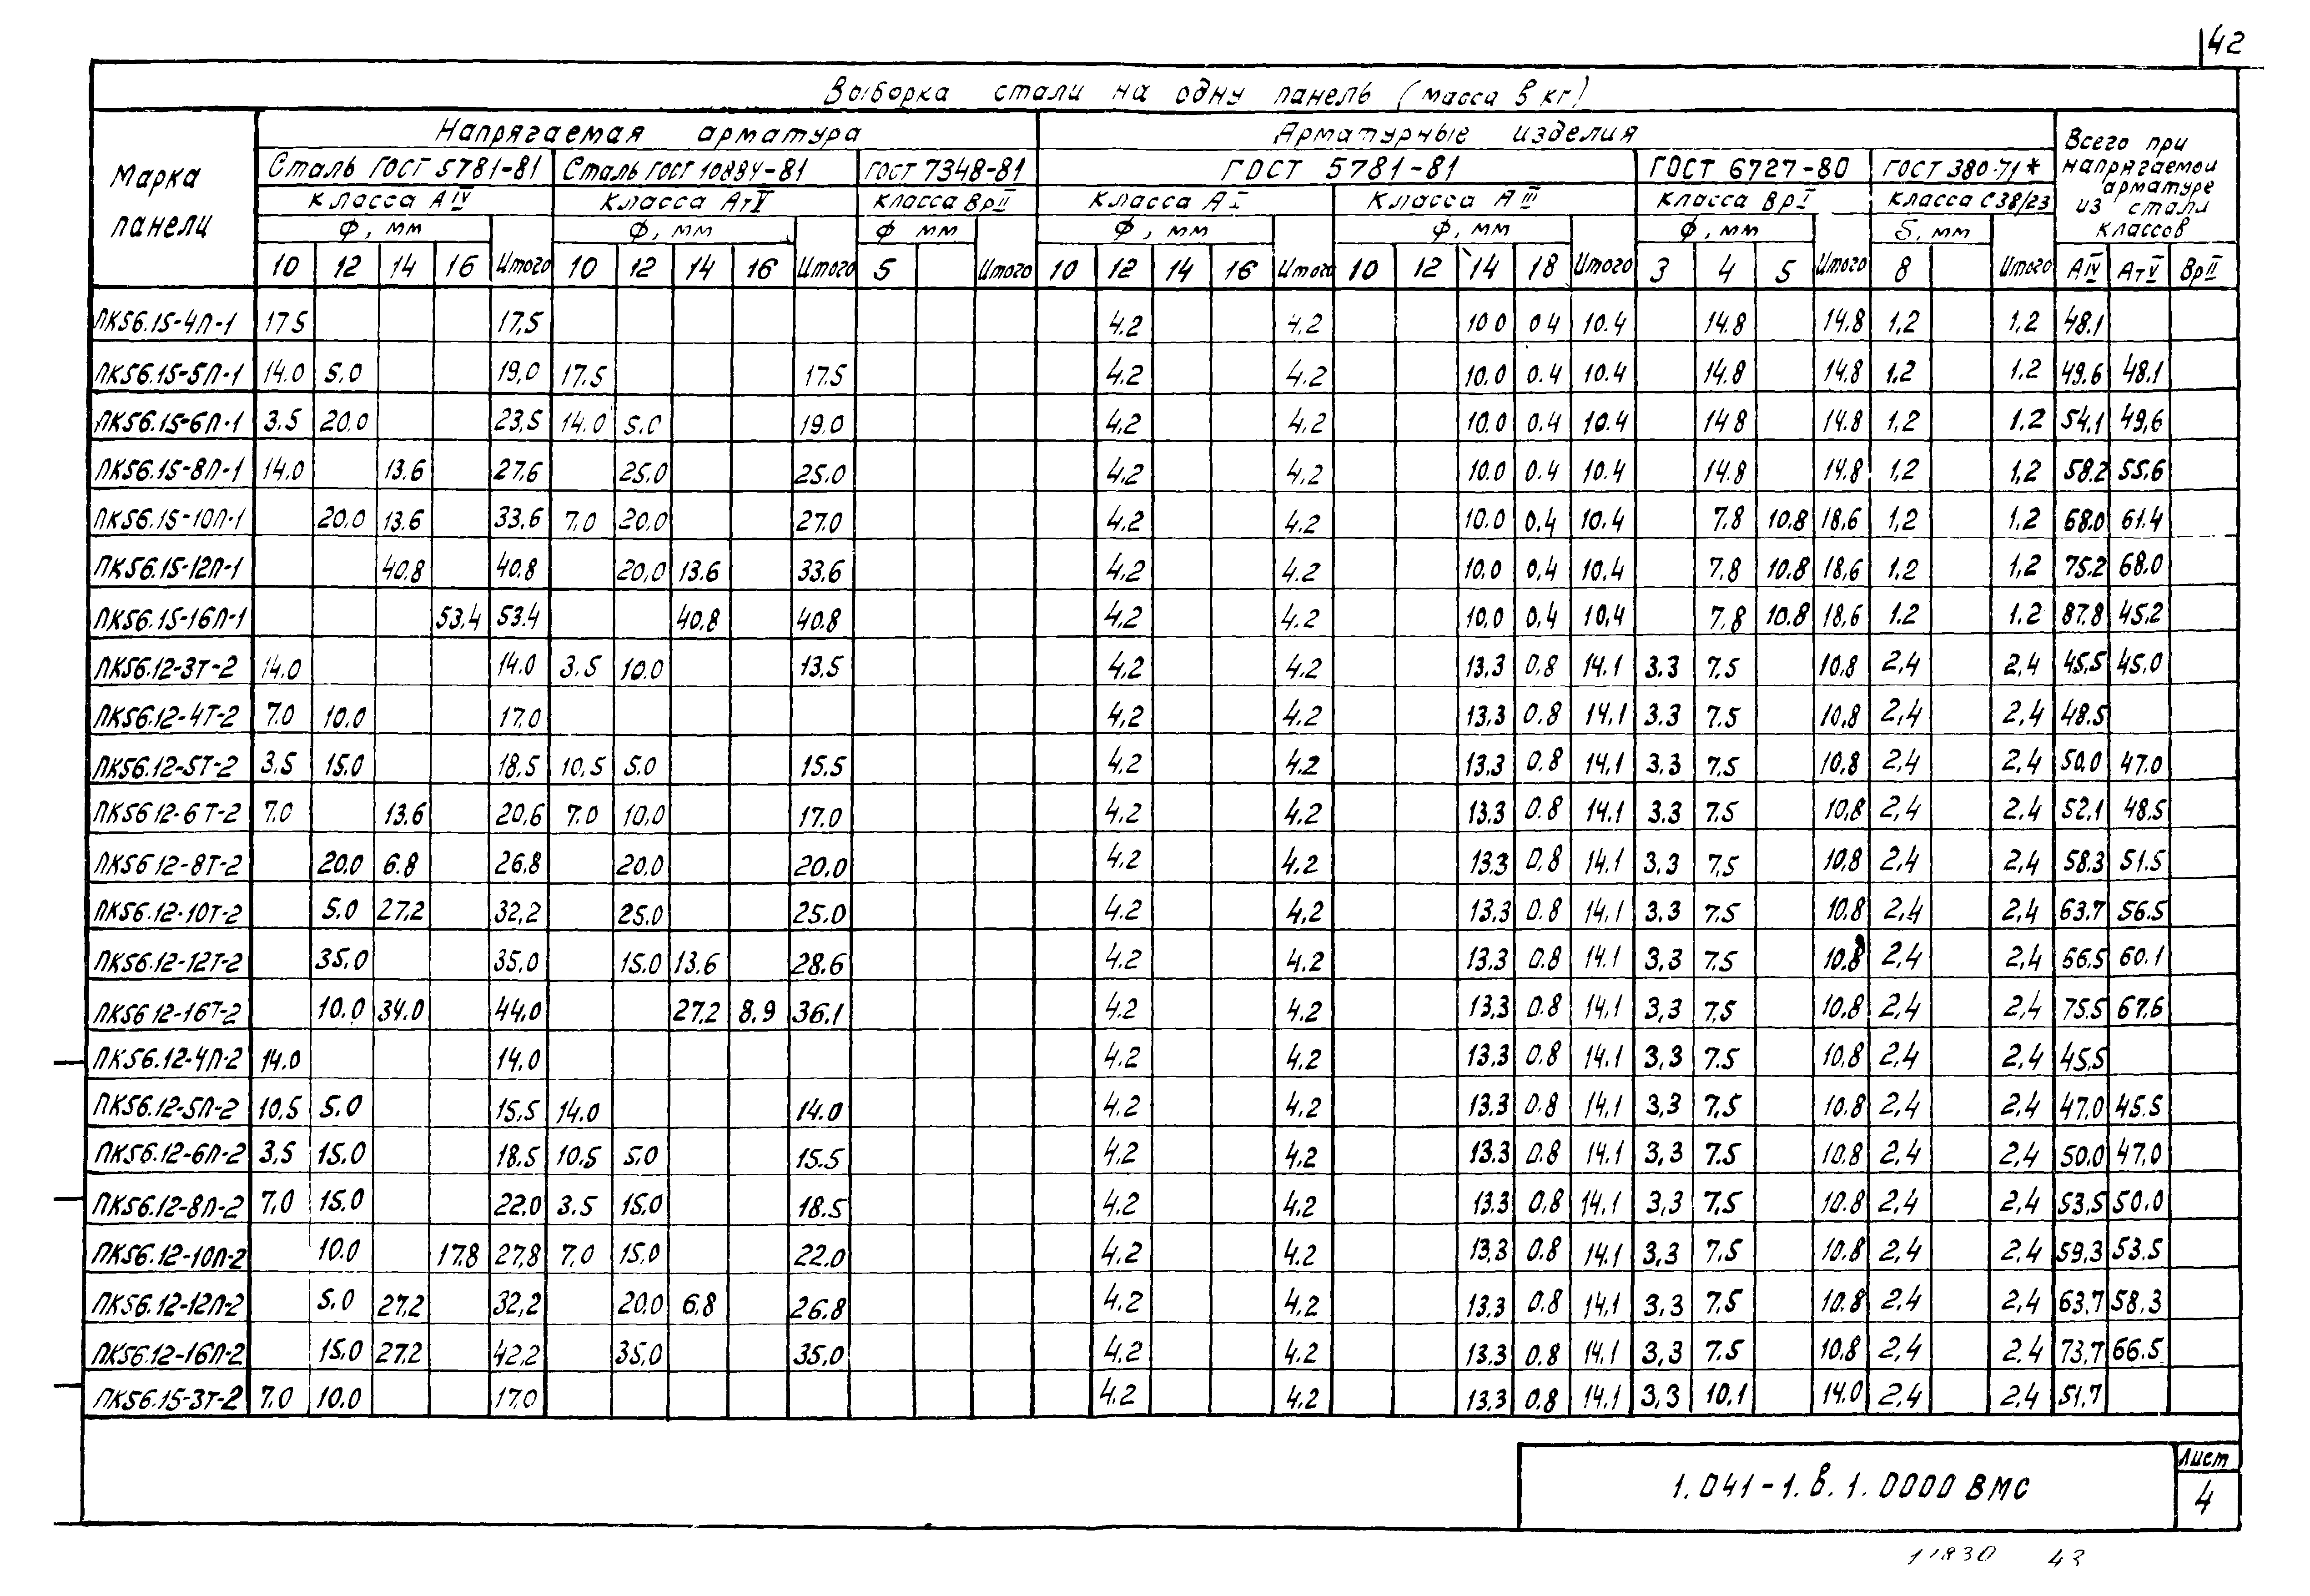 42
Выборка стали на одну панель (масса в кг)
Марка панели
Напрягаемая арматура
Арматурные изделия
Всего при напрягаемой арматуре из стали классов
Сталь ГОСТ 5781-81 Сталь ГОСТ 10884-81 ГОСТ 7348-81 ГОСТ 5781-81 ГОСТ 6727-80 ГОСТ 380-71*
Класса АIV Класса АтV Класса ВрII Класса АI Класса АIII Класса ВрI Класса С38/23
Ф, мм Ф, мм Ф мм Ф, мм Ф, мм Ф, мм δ, мм
10 12 14 16 Итого 10 12 14 16 Итого 5 Итого 10 12 14 16 Итого 10 12 14 18 Итого 3 4 5 Итого 8 Итого АIV АтV ВрII
ПК56.15-4П-1 17.5 17,5 4.2 4.2 10.0 0.4 10.4 14.8 14.8 1,2 1,2 48.1
ПК56.15-5П-1 14.0 5.0 19,0 17.5 17.5 4.2 4.2 10.0 0.4 10.4 14.8 14.8 1.2 1.2 49.6 48.1
ПК56.15-6П-1 3.5 20.0 23,5 14.0 5.0 19.0 4.2 4.2 10.0 0.4 10.4 14.8 14.8 1,2 1.2 54.1 49,6
ПК56.15-8П-1 14.0 13.6 27,6 25.0 25.0 4.2 4.2 10.0 0.4 10.4 14.8 14.8 1,2 1,2 58.2 55,6
ПК56.15-10П-1 20.0 13.6 33,6 7,0 20.0 27.0 4.2 4.2 10.0 0.4 10.4 7.8 10.8 18,6 1,2 1.2 68.0 61.4
ПК56.15-12П-1 40.8 40.8 20,0 13.6 33.6 4.2 4.2 10.0 0,4 10.4 7.8 10.8 18,6 1.2 1,2 75.2 68.0
ПК56.15-16П-1 53,4 53.4 40.8 40.8 4.2 4.2 10.0 0,4 10,4 7,8 10.8 18,6 1.2 1.2 87.8 45,2
ПК56.12-3Т-2 14.0 14.0 3.5 10.0 13,5 4.2 4.2 13.3 0,8 14.1 3.3 7,5 10,8 2,4 2,4 45,5 45,0
ПК56.12-4Т-2 7.0 10.0 17.0 4,2 4.2 13,3 0.8 14,1 3.3 7.5 10,8 2,4 2,4 48.5
ПК56.12-5Т-2 3.5 15.0 18,5 10,5 5.0 15.5 4.2 4.2 13.3 0.8 14,1 3,3 7,5 10.8 2,4 2,4 50,0 47.0
ПК56 12-6Т-2 7.0 13.6 20,6 7.0 10,0 17.0 4.2 4.2 13.3 0.8 14.1 3.3 7.5 10,8 2,4 2.4 52,1 48.5
ПК56 12-8Т-2 20.0 6.8 26.8 20.0 20.0 4.2 4.2 13.3 0,8 14.1 3,3 7,5 10.8 2,4 2,4 58.3 51.5
ПК56.12-10Т-2 5.0 27.2 32,2 25.0 25.0 4.2 4.2 13,3 0.8 14,1 3.3 7.5 10.8 2,4 2,4 63.7 56.5
ПК56.12-12Т-2 35,0 35,0 15.0 13.6 28.6 4.2 4.2 13.3 0.8 14.1 3,3 7.5 10.8 2,4 2,4 66.5 60.1
ПК56 12-16Т-2 10.0 34.0 44,0 27.2 8.9 36.1 4.2 4.2 13,3 0.8 14,1 3,3 7,5 10,8 2,4 2,4 75.5 67.6
ПК56.12-4П-2 14.0 14,0 4.2 4.2 13.3 0.8 14.1 3,3 7.5 10,8 2,4 2,4 45,5
ПК56.12-5П-2 10,5 5.0 15,5 14.0 14.0 4.2 4.2 13.3 0.8 14,1 3,3 7,5 10.8 2,4 2,4 47,0 45.5
ПК56.12-6П-2 3,5 15.0 18.5 10.5 5.0 15.5 4.2 4.2 13.3 0.8 14.1 3,3 7.5 10.8 2,4 2,4 50.0 47,0
ПК56.12-8П-2 7,0 15.0 22.0 3.5 15.0 18.5 4.2 4.2 13.3 0,8 14,1 3,3 7,5 10.8 2,4 2,4 53,5 50.0
ПК56.12-10П-2 10.0 17.8 27,8 7,0 15,0 22.0 4.2 4.2 13,3 0.8 14.1 3,3 7,5 10.8 2,4 2,4 59,3 53.5
ПК56.12-12П-2 5,0 27.2 32,2 20.0 6.8 26.8 4.2 4.2 13.3 0.8 14,1 3,3 7,5 10.8 2,4 2,4 63,7 58,3
ПК56.12-16П-2 15.0 27.2 42,2 35,0 35,0 4.2 4.2 13.3 0.8 14,1 3,3 7.5 10,8 2,4 2.4 73,7 66.5
ПК56.15-3Т-2 7.0 10.0 17,0 4.2 4.2 13.3 0.8 14,1 3,3 10.1 14.0 2,4 2,4 51,7
1.041-1.в.1.0000 ВМС
Лист
4
43